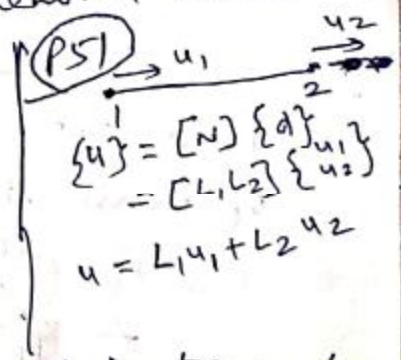 P51
u1
u2
1
2
{u} = [N] {d}
= [L1 L2] {u1 u2}
u = L1u1 + L2 u2